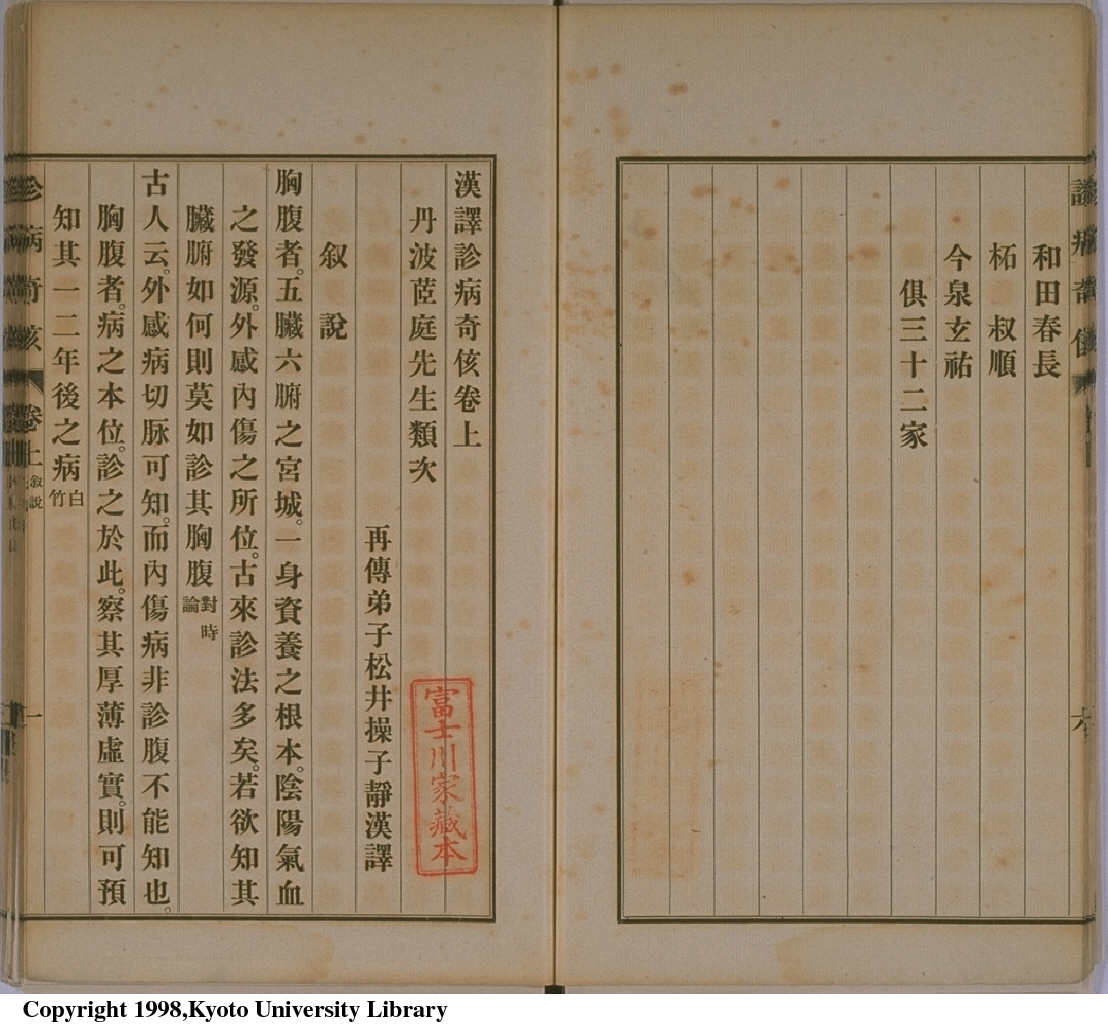 和田春長
柘　叔順
今泉玄祐
俱三十二家
六
漢譯診病奇侅卷上
丹波茝庭先生類次
再傳弟子松井操子靜漢譯
叙說
胸腹者。五臟六腑之宮城。一身資養之根本。陰陽氣血
之發源。外感內傷之所位。古來診法多矣。若欲知其
臟腑如何則莫如診其胸腹對時論
古人云。外感病切脉可知。而內傷病非診腹不能知也。
胸腹者。病之本位。診之於此。察其厚薄虛實。則可預
知其一二年後之病白竹
診病奇侅 卷上 叙說 一
富士川家藏本
Copyright 1998,Kyoto University Library